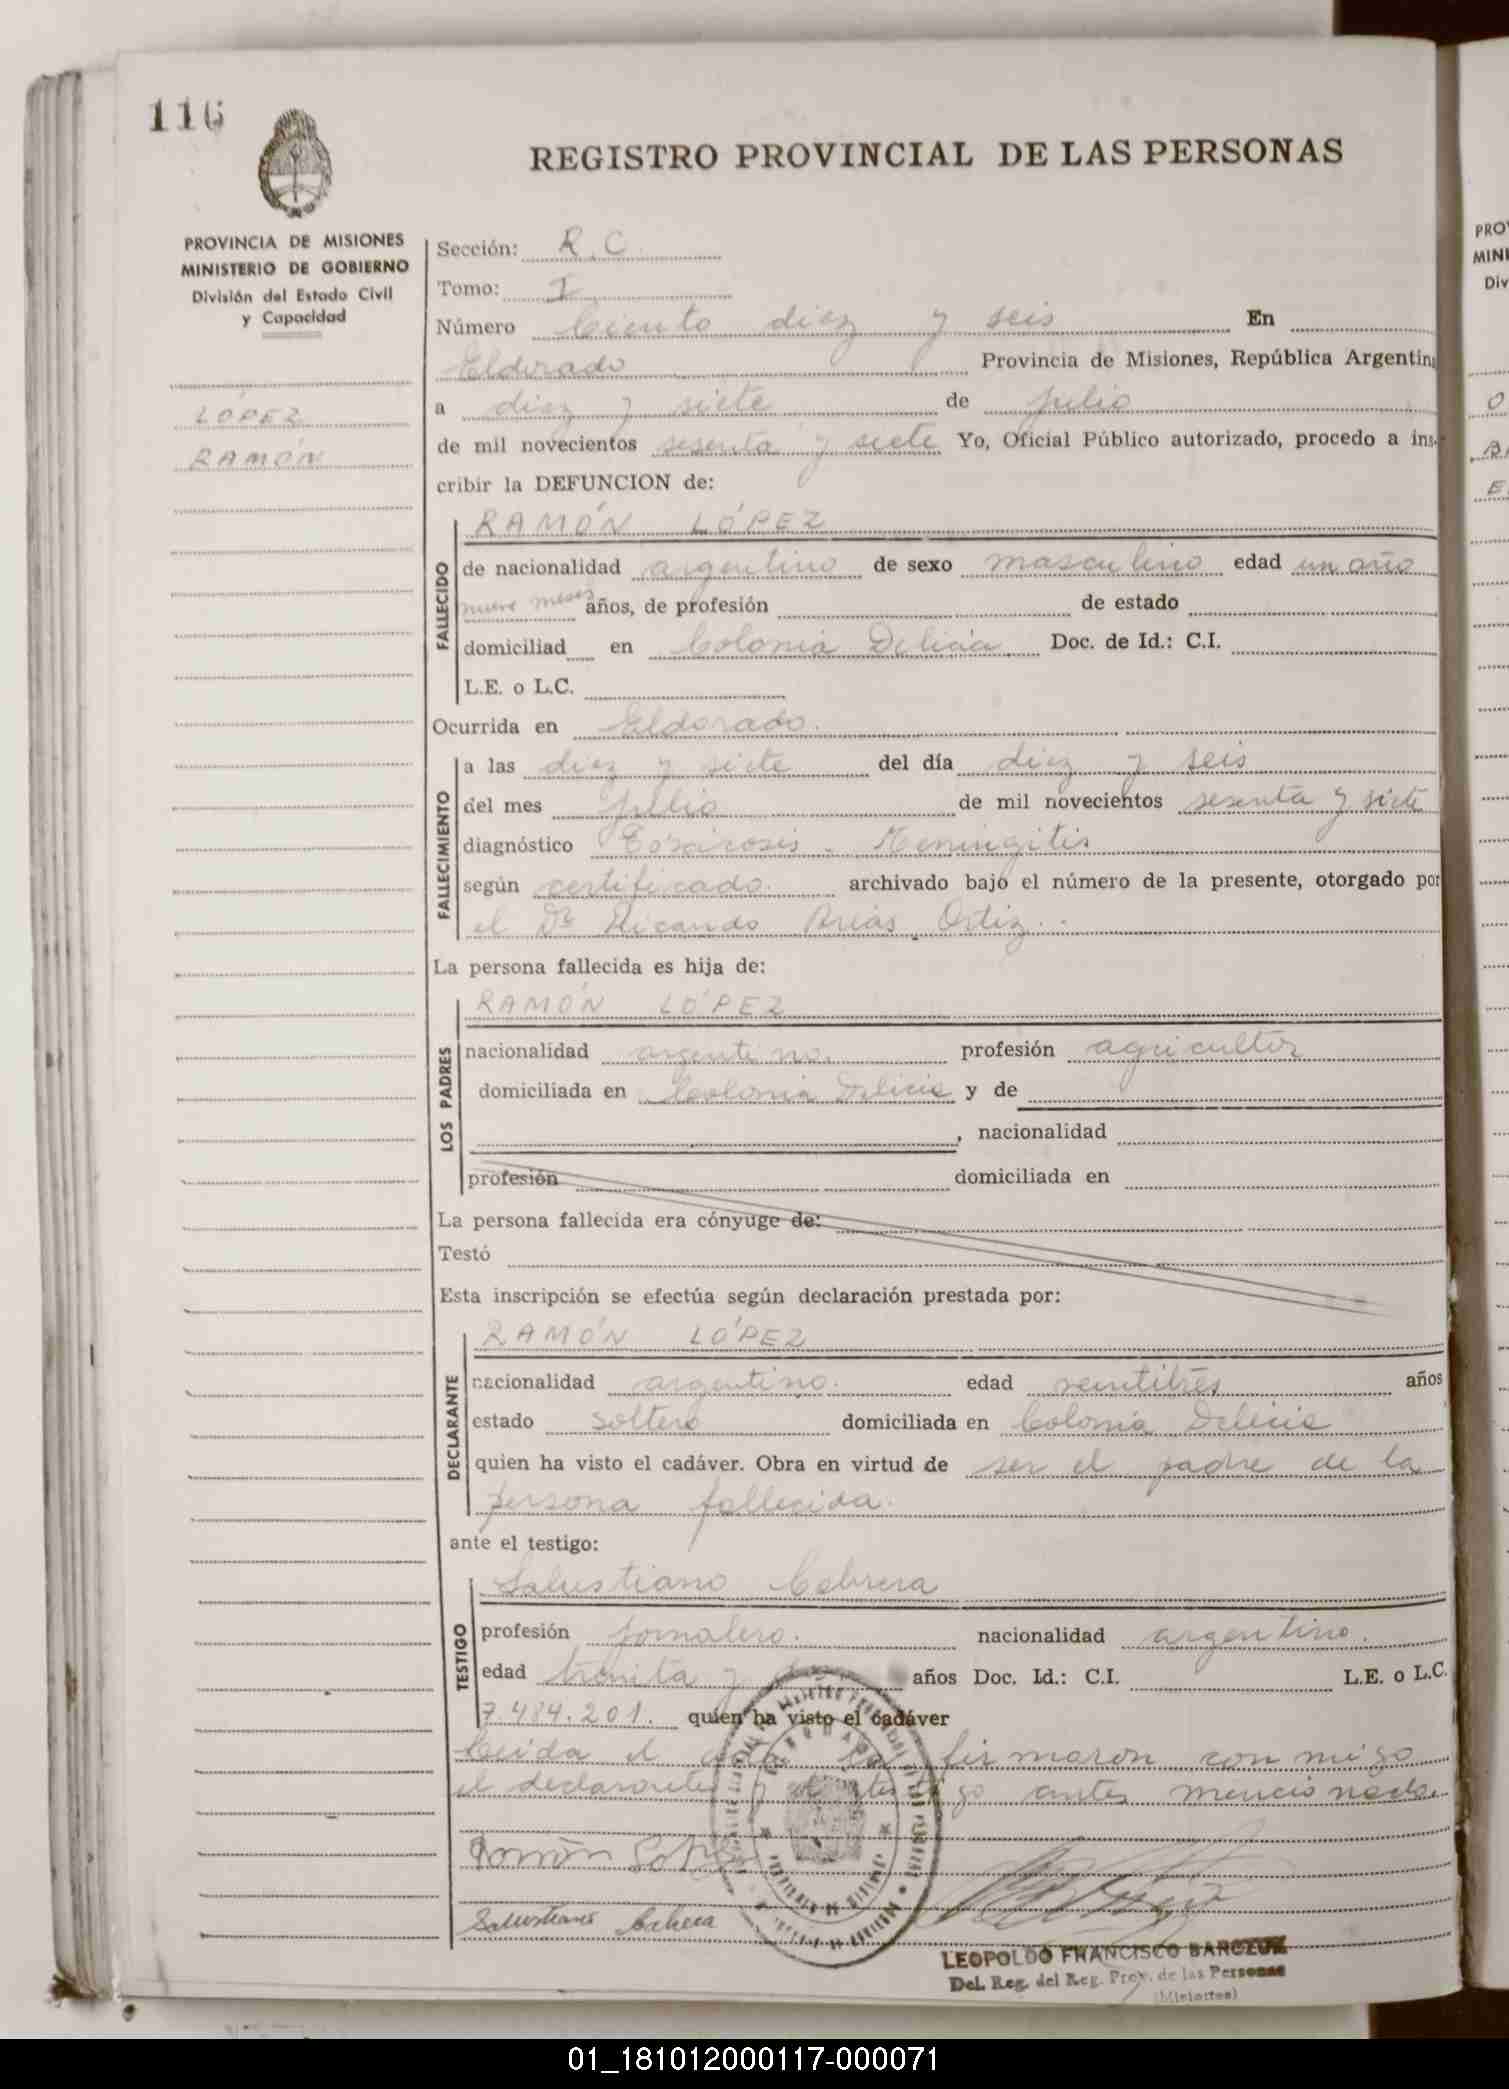 116
REGISTRO PROVINCIAL DE LAS PERSONAS
PROVINCIA DE MISIONES
MINISTERIO DE GOBIERNO
División del Estado Civil
y Capacidad
LÓPEZ
RAMÓN
Sección: R.C.
Tomo: I
Número Ciento diez y seis En
Eldorado Provincia de Misiones, República Argentina
a diez y siete de julio
de mil novecientos sesenta y siete Yo, Oficial Público autorizado, procedo a ins-
cribir la DEFUNCION de:
FALLECIDO
RAMÓN LÓPEZ
de nacionalidad argentino de sexo masculino edad un año
nueve meses años, de profesión de estado
domiciliad en Colonia Delicia Doc. de Id.: C.I.
L.E. o L.C.
Ocurrida en Eldorado.
FALLECIMIENTO
a las diez y siete del día diez y seis
del mes julio de mil novecientos sesenta y siete
diagnóstico Meningitis
según certificado. archivado bajo el número de la presente, otorgado por
el Dr Ricardo Arias Ortiz.
La persona fallecida es hija de:
LOS PADRES
RAMÓN LÓPEZ
nacionalidad argentino. profesión agricultor
domiciliada en Colonia Delicia y de
, nacionalidad
profesión domiciliada en
La persona fallecida era cónyuge de:
Testó
Esta inscripción se efectúa según declaración prestada por:
DECLARANTE
RAMÓN LÓPEZ
nacionalidad argentino. edad veintitrés años
estado soltero domiciliada en Colonia Delicia
quien ha visto el cadáver. Obra en virtud de ser el padre de la
persona fallecida.
ante el testigo:
TESTIGO
Salustiano Cabrera
profesión jornalero. nacionalidad argentino.
edad treinta y años Doc. Id.: C.I. L.E. o L.C.
7.484.201. quien ha visto el cadáver
Leida el acta la firmaron conmigo
el declarante y el testigo antes mencionado.
Ramón López
Salustiano Cabrera
LEOPOLDO FRANCISCO
Del. Reg. del Reg. Prov. de las Personas
(Misiones)
01_181012000117-000071